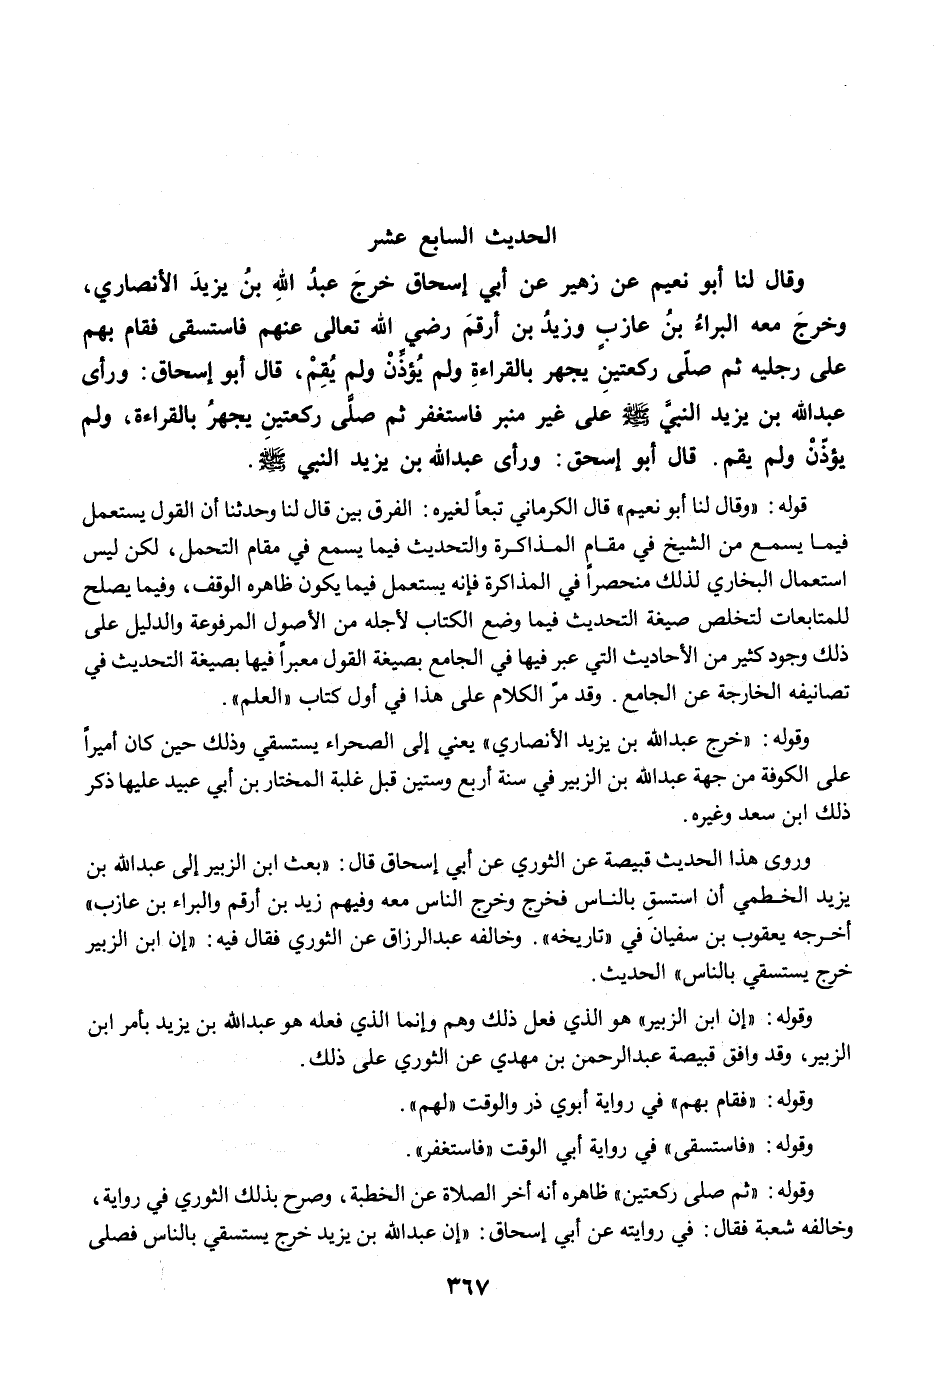 الحديث السابع عشر
وقال لنا أبو نعيم عن زهير عن أبي إسحاق خرجَ عبدُ اللهِ بنُ يزيدَ الأنصاري،
وخرجَ معه البراءُ بنُ عازبٍ وزيدُ بن أرقمَ رضي الله تعالى عنهم فاستسقى فقام بهم
على رجليه ثم صلّى ركعتينِ يجهر بالقراءةِ ولم يُؤذِّنْ ولم يُقِمْ، قال أبو إسحاق: ورأى
عبدالله بن يزيد النبيَّ ﷺ على غير منبر فاستغفر ثم صلَّى ركعتينِ يجهرُ بالقراءة، ولم
يؤذّنْ ولم يقم. قال أبو إسحق: ورأى عبدالله بن يزيد النبي ﷺ.
قوله: «وقال لنا أبو نعيم» قال الكرماني تبعاً لغيره: الفرق بين قال لنا وحدثنا أن القول يستعمل
فيما يسمع من الشيخ في مقام المذاكرة والتحديث فيما يسمع في مقام التحمل، لكن ليس
استعمال البخاري لذلك منحصراً في المذاكرة فإنه يستعمل فيما يكون ظاهره الوقف، وفيما يصلح
للمتابعات لتخلص صيغة التحديث فيما وضع الكتاب لأجله من الأصول المرفوعة والدليل على
ذلك وجود كثير من الأحاديث التي عبر فيها في الجامع بصيغة القول معبراً فيها بصيغة التحديث في
تصانيفه الخارجة عن الجامع. وقد مرّ الكلام على هذا في أول كتاب «العلم».
وقوله: «خرج عبدالله بن يزيد الأنصاري» يعني إلى الصحراء يستسقي وذلك حين كان أميراً
على الكوفة من جهة عبدالله بن الزبير في سنة أربع وستين قبل غلبة المختار بن أبي عبيد عليها ذكر
ذلك ابن سعد وغيره.
وروى هذا الحديث قبيصة عن الثوري عن أبي إسحاق قال: «بعث ابن الزبير إلى عبدالله بن
يزيد الخطمي أن استسقِ بالناس فخرج وخرج الناس معه وفيهم زيد بن أرقم والبراء بن عازب»
أخرجه يعقوب بن سفيان في «تاريخه». وخالفه عبدالرزاق عن الثوري فقال فيه: «إن ابن الزبير
خرج يستسقي بالناس» الحديث.
وقوله: «إن ابن الزبير» هو الذي فعل ذلك وهم وإنما الذي فعله هو عبدالله بن يزيد بأمر ابن
الزبير، وقد وافق قبيصة عبدالرحمن بن مهدي عن الثوري على ذلك.
وقوله: «فقام بهم» في رواية أبوي ذر والوقت «لهم».
وقوله: «فاستسقى» في رواية أبي الوقت «فاستغفر».
وقوله: «ثم صلى ركعتين» ظاهره أنه أخر الصلاة عن الخطبة، وصرح بذلك الثوري في رواية،
وخالفه شعبة فقال: في روايته عن أبي إسحاق: «إن عبدالله بن يزيد خرج يستسقي بالناس فصلى
٣٦٧